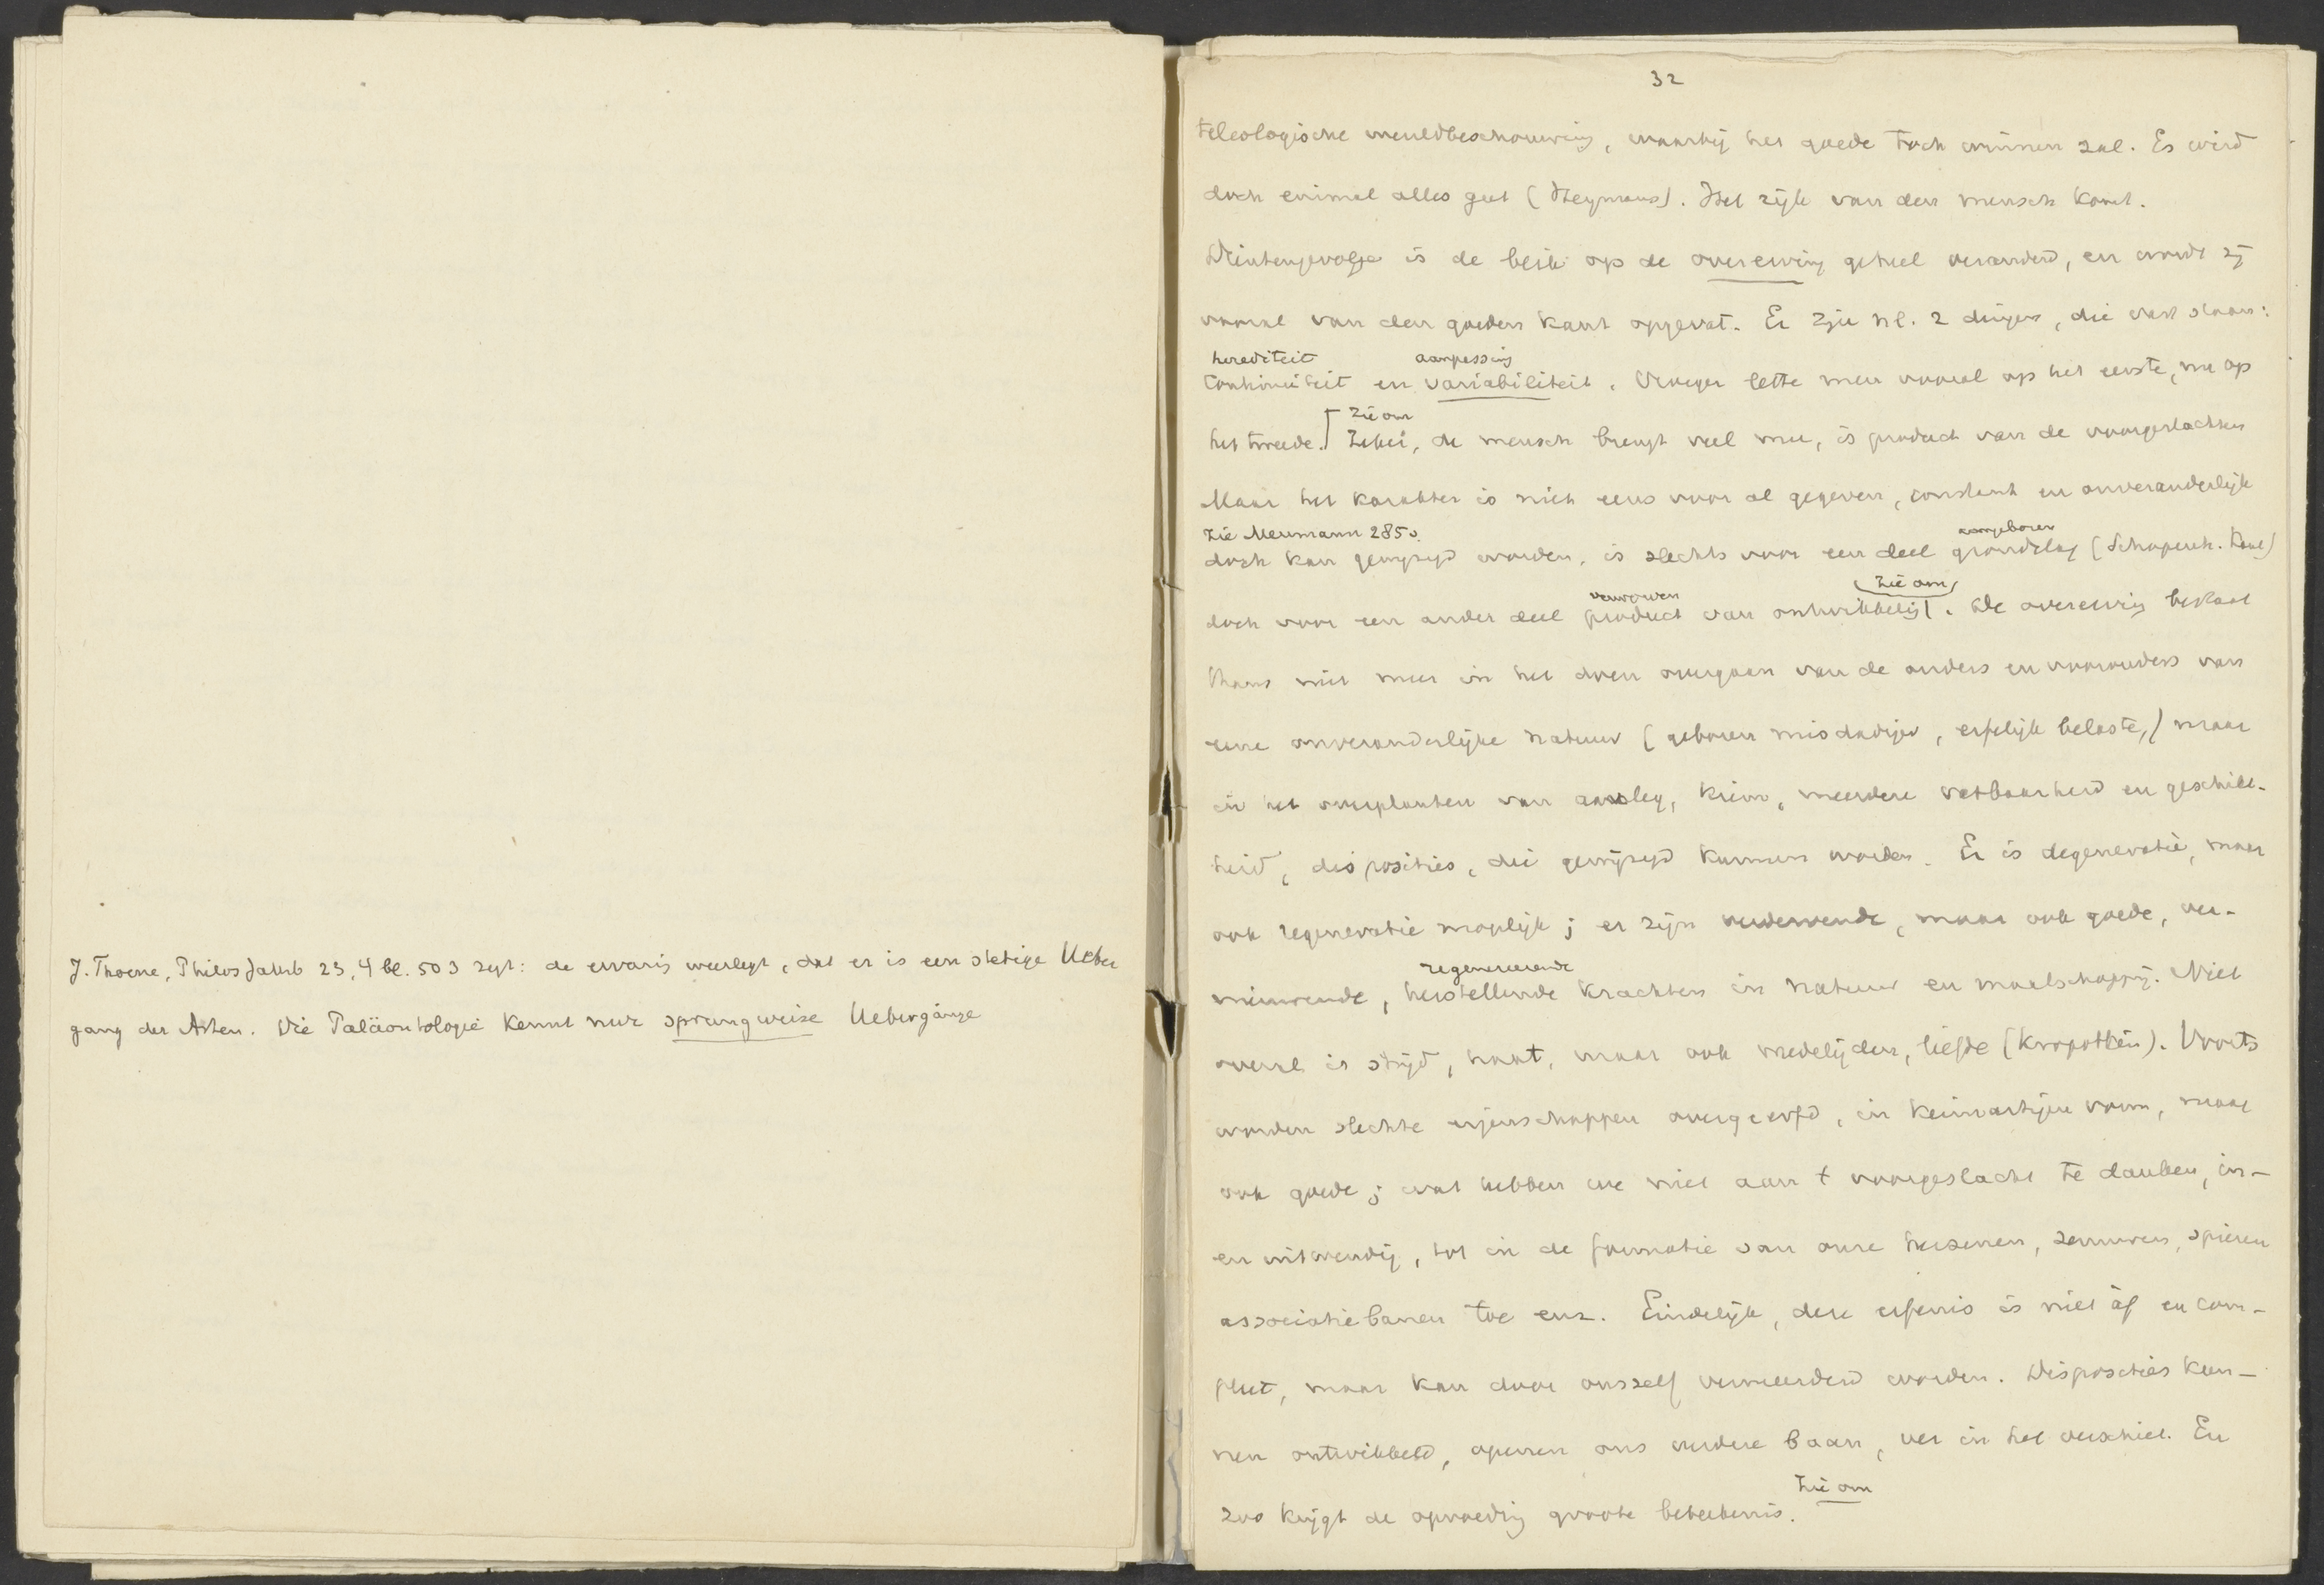 J. Thoene, Philos Jahrb 23, 4 bl. 503 zegt: de ervaring weerlegt, dat er is een stetige Ueber
gang der Arten. Die Paläontologie kennt nur sprungweise Uebergänge
32
teleologische wereldbeschouwing, waarbij het goede toch winnen zal. Es wird
doch einmal alles gut (Heymans). Het rijk van den mensch komt.
Dientengevolge is de blik op de overerving geheel veranderd, en wordt zij
vooral van den goeden kant opgevat. Er zijn nl. 2 dingen, die vast staan:
herediteit aanpassing
continuiteit en variabiliteit. Vroeger lette men vooral op het eerste, nu op
zie om
het tweede. Zeker, de mensch brengt veel mee, is product van de voorgeslachten
Maar het karakter is niet eens voor al gegeven, constant en onveranderlijk
zie Meumann 285v. aangeboren
doch kan gewijzigd worden, is slechts voor een deel grondslag (Schopenh. Kant)
verworven zie om
doch voor een ander deel product van ontwikkeling. De overerving bestaat
thans niet meer in het doen overgaen van de ouders en voorouders van
eene onveranderlijke natuur (geboren misdadiger, erfelijk belaste,) maar
in het overplanten van aanleg, kiem, meerdere vatbaarheid en geschikt-
heid, disposities, die gewijzigd kunnen worden. Er is degeneratie, maar
ook regeneratie mogelijk; er zijn verdervende, maar ook goede, ver-
regenereerende
nieuwende, herstellende krachten in natuur en maatschappij. Niet
overal is strijd, haat, maar ook medelijden, liefde (Kropotkin). Voorts
worden slechte eigenschappen overgeerfd, in kiemartigen vorm, maar
ook goede; wat hebben we niet aan t voorgeslacht te danken, in-
en uitwendig, tot in de formatie van onze hersenen, zenuwen, spieren
associatiebanen toe enz. Eindelijk, deze erfenis is niet àf en com-
pleet, maar kan door onszelf vermeerderd worden. Disposities kun-
nen ontwikkeld, openen ons verdere baan, ver in het verschiet. En
zie om
zoo krijgt de opvoeding groote beteekenis.